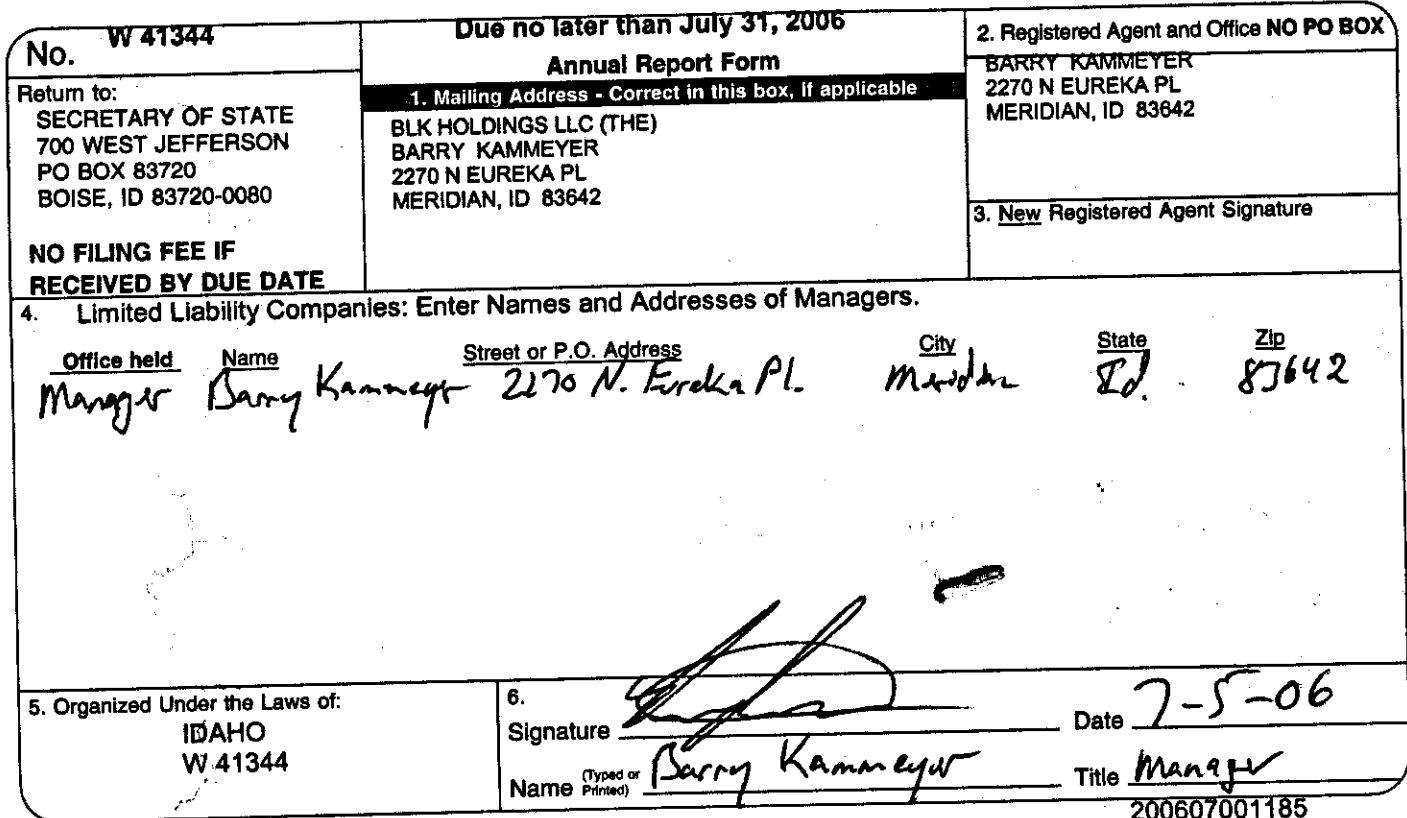 No. W 41344
Return to:
SECRETARY OF STATE
700 WEST JEFFERSON
PO BOX 83720
BOISE, ID 83720-0080
NO FILING FEE IF
RECEIVED BY DUE DATE
Due no later than July 31, 2006
Annual Report Form
1. Mailing Address - Correct in this box, if applicable
BLK HOLDINGS LLC (THE)
BARRY KAMMEYER
2270 N EUREKA PL
MERIDIAN, ID 83642
2. Registered Agent and Office NO PO BOX
BARRY KAMMEYER
2270 N EUREKA PL
MERIDIAN, ID 83642
3. New Registered Agent Signature
4. Limited Liability Companies: Enter Names and Addresses of Managers.
Office held Name Street or P.O. Address City State Zip
Manager Barry Kammeyer 2270 N. Eureka Pl. Meridian Id. 83642
5. Organized Under the Laws of:
IDAHO
W 41344
6.
Signature
Date 7-5-06
Name (Typed or Printed) Barry Kammeyer
Title Manager
200607001185